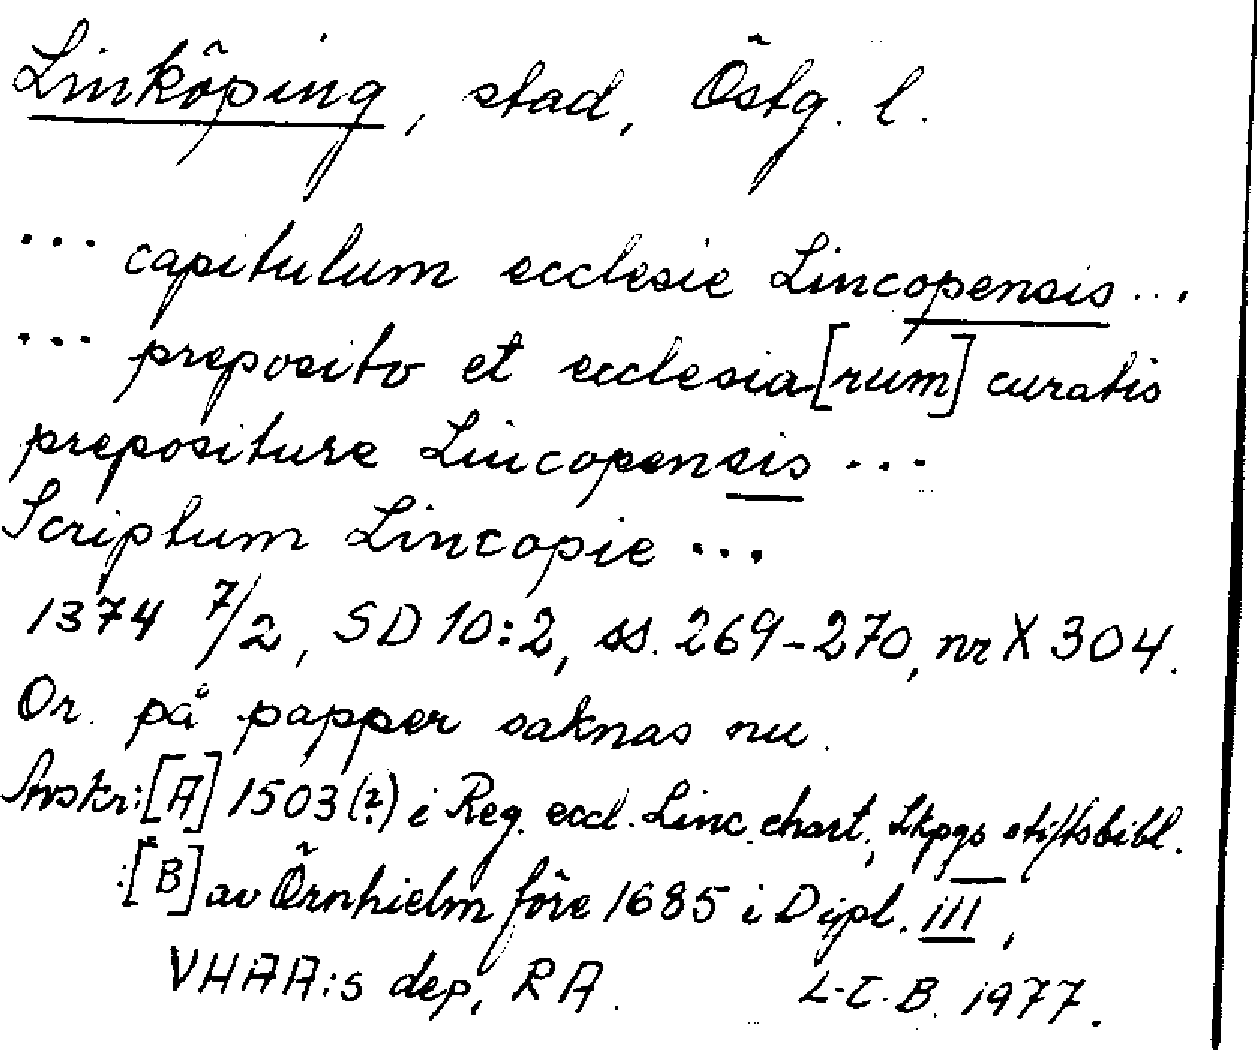 Linköping, stad, Östg. l.
... capitulum ecclesie Lincopensis ...
... preposito et ecclesia[rum] curatis
prepositure Lincopensis ...
Scriptum Lincopie ...
1374 7/2, SD 10:2, ss. 269-270, nr X 304.
Or. på papper saknas nu.
Avskr:[A] 1503(?) i Reg. eccl. Linc. chart., Lkpgs stiftsbibl.
:[B] av Örnhielm före 1685 i Dipl. III,
VHAA:s dep, RA. L-C. B. 1977.